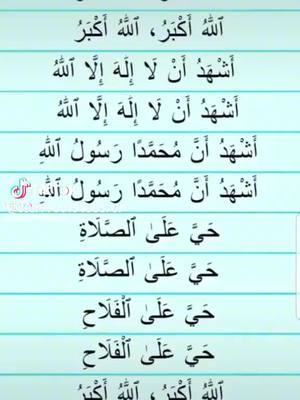 ٱللَّٰهُ أَكْبَرُ، ٱللَّٰهُ أَكْبَرُ
أَشْهَدُ أَنْ لَا إِلَهَ إِلَّا ٱللَّٰهُ
أَشْهَدُ أَنْ لَا إِلَهَ إِلَّا ٱللَّٰهُ
أَشْهَدُ أَنَّ مُحَمَّدًا رَسُولُ ٱللَّٰهِ
أَشْهَدُ أَنَّ مُحَمَّدًا رَسُولُ ٱللَّٰهِ
حَيَّ عَلَىٰ ٱلصَّلَاةِ
حَيَّ عَلَىٰ ٱلصَّلَاةِ
حَيَّ عَلَىٰ ٱلْفَلَاحِ
حَيَّ عَلَىٰ ٱلْفَلَاحِ
ٱللَّٰهُ أَكْبَرُ، ٱللَّٰهُ أَكْبَرُ